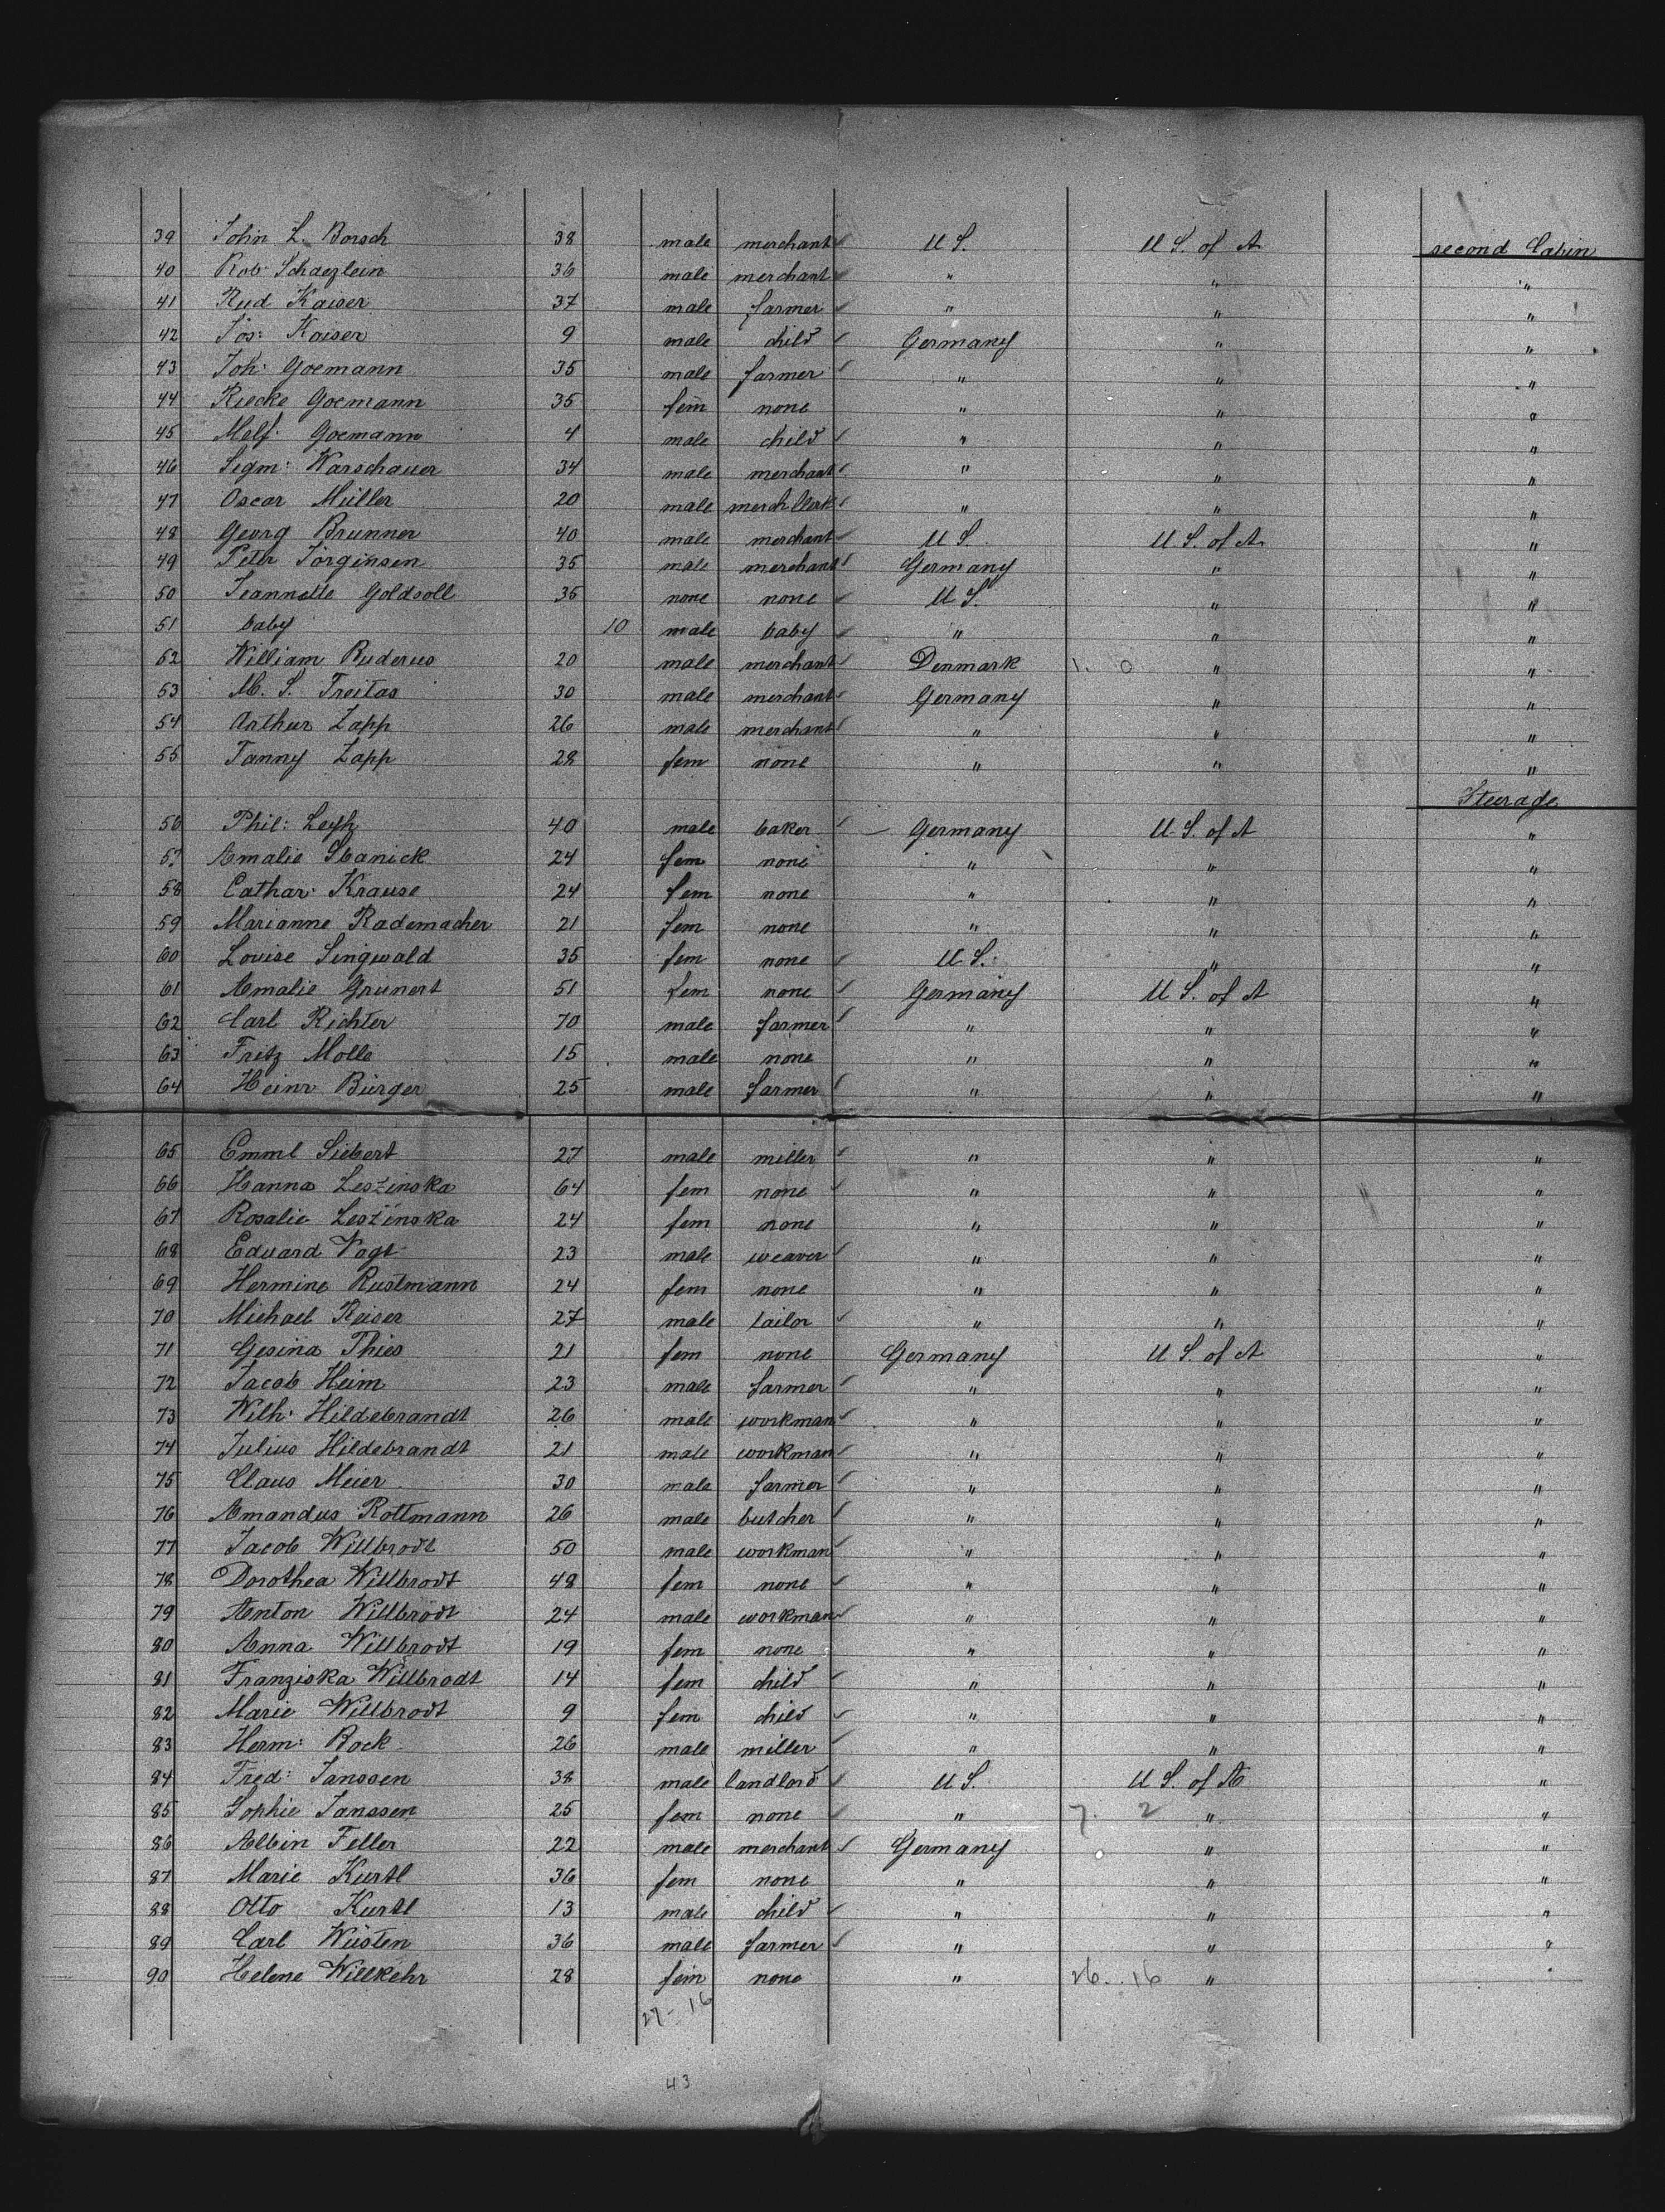 39 John L. Borsch 38 male merchant U S. U S. of A second Cabin
40 Rob: Schaezlein 36 male merchant " " "
41 Rud Kaiser 37 male farmer " " "
42 Jos: Kaiser 9 male child Germany " "
43 Joh: Goemann 35 male farmer " " "
44 Riecke Goemann 35 fem none " " "
45 Goemann 4 male child " " "
46 Segm: Warschauer 34 male merchant " " "
47 Oscar Müller 20 male merch Clerk " " "
48 Georg Brunner 40 male merchant U S. U. S. of A "
49 Peter Jörginsen 35 male merchant Germany " "
50 Jeannette Goldsoll 35 none none U S. " "
51 baby 10 male baby " " "
52 William Ruderus 20 male merchant Denmark 1. 0 " "
53 M. S. Freitas 30 male merchant Germany " "
54 Arthur Zapp 26 male merchant " " "
55 Fanny Zapp 28 fem none " " "
Steerage
56 Phil: 40 male baker Germany U. S. of A "
57 Amalie 24 fem none " " "
58 Cathar: Krause 24 fem none " " "
59 Marianne Rademacher 21 fem none " " "
60 Louise Singwald 35 fem none U S. " "
61 Amalie Grunert 51 fem none Germany U S. of A "
62 Carl Richter 70 male farmer " " "
63 Fritz Molle 15 male none " " "
64 Heinr Bürger 25 male farmer " " "
65 Emml Siebert 27 male miller " " "
66 Hanna Leszinska 64 fem none " " "
67 Rosalie Leszinska 24 fem none " " "
68 Eduard Vogt 23 male weaver " " "
69 Hermine Rustmann 24 fem none " " "
70 Michael Kaiser 27 male tailor " " "
71 Gesina Thies 21 fem none Germany U S. of A "
72 Jacob Heim 23 male farmer " " "
73 Wilh: Hildebrandt 26 male workman " " "
74 Julius Hildebrandt 21 male workman " " "
75 Claus Meier 30 male farmer " " "
76 Amandus Rottmann 26 male butcher " " "
77 Jacob Willbrodt 50 male workman " " "
78 Dorothea Willbrodt 48 fem none " " "
79 Anton Willbrodt 24 male workman " " "
80 Anna Willbrodt 19 fem none " " "
81 Franziska Willbrodt 14 fem child " " "
82 Marie Willbrodt 9 fem child " " "
83 Herm: Rock 26 male miller " " "
84 Fred: Janssen 38 male landlord U S. U S. of A "
85 Sophie Janssen 25 fem none " 7. 2 " "
86 Albin Feller 22 male merchant Germany " "
87 Marie Kurtl 36 fem none " " "
88 Otto Kurtl 13 male child " " "
89 Carl Wüsten 36 male farmer " " "
90 Helene Willkehr 28 fem none " 26. 16 "
27 - 16
43